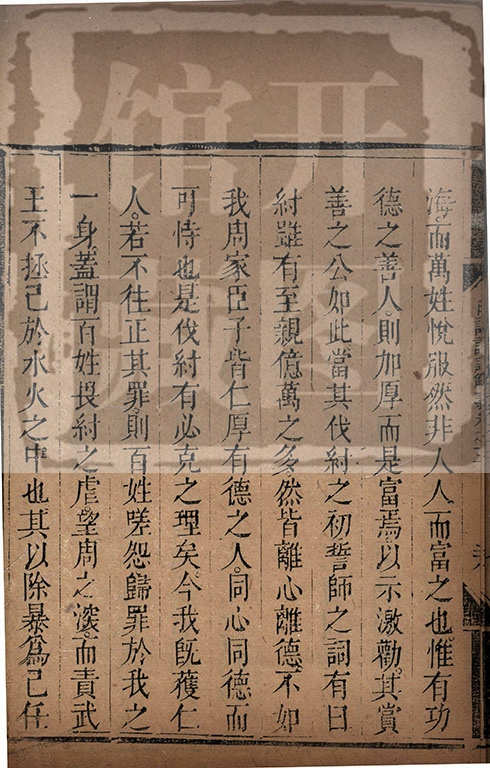 海而萬姓悅服然非人人而富之也惟有功
德之善人則加厚而是富焉以示激勸其賞
善之公如此當其伐紂之初誓師之詞有曰
紂雖有至親億萬之多然皆離心離德不如
我周家臣子皆仁厚有德之人同心同德而
可恃也是伐紂有必克之理矣今我旣獲仁
人若不往正其罪則百姓嗟怨歸罪於我之
一身蓋謂百姓畏紂之虐望周之深而責武
王不拯己於水火之中也其以除暴爲己任